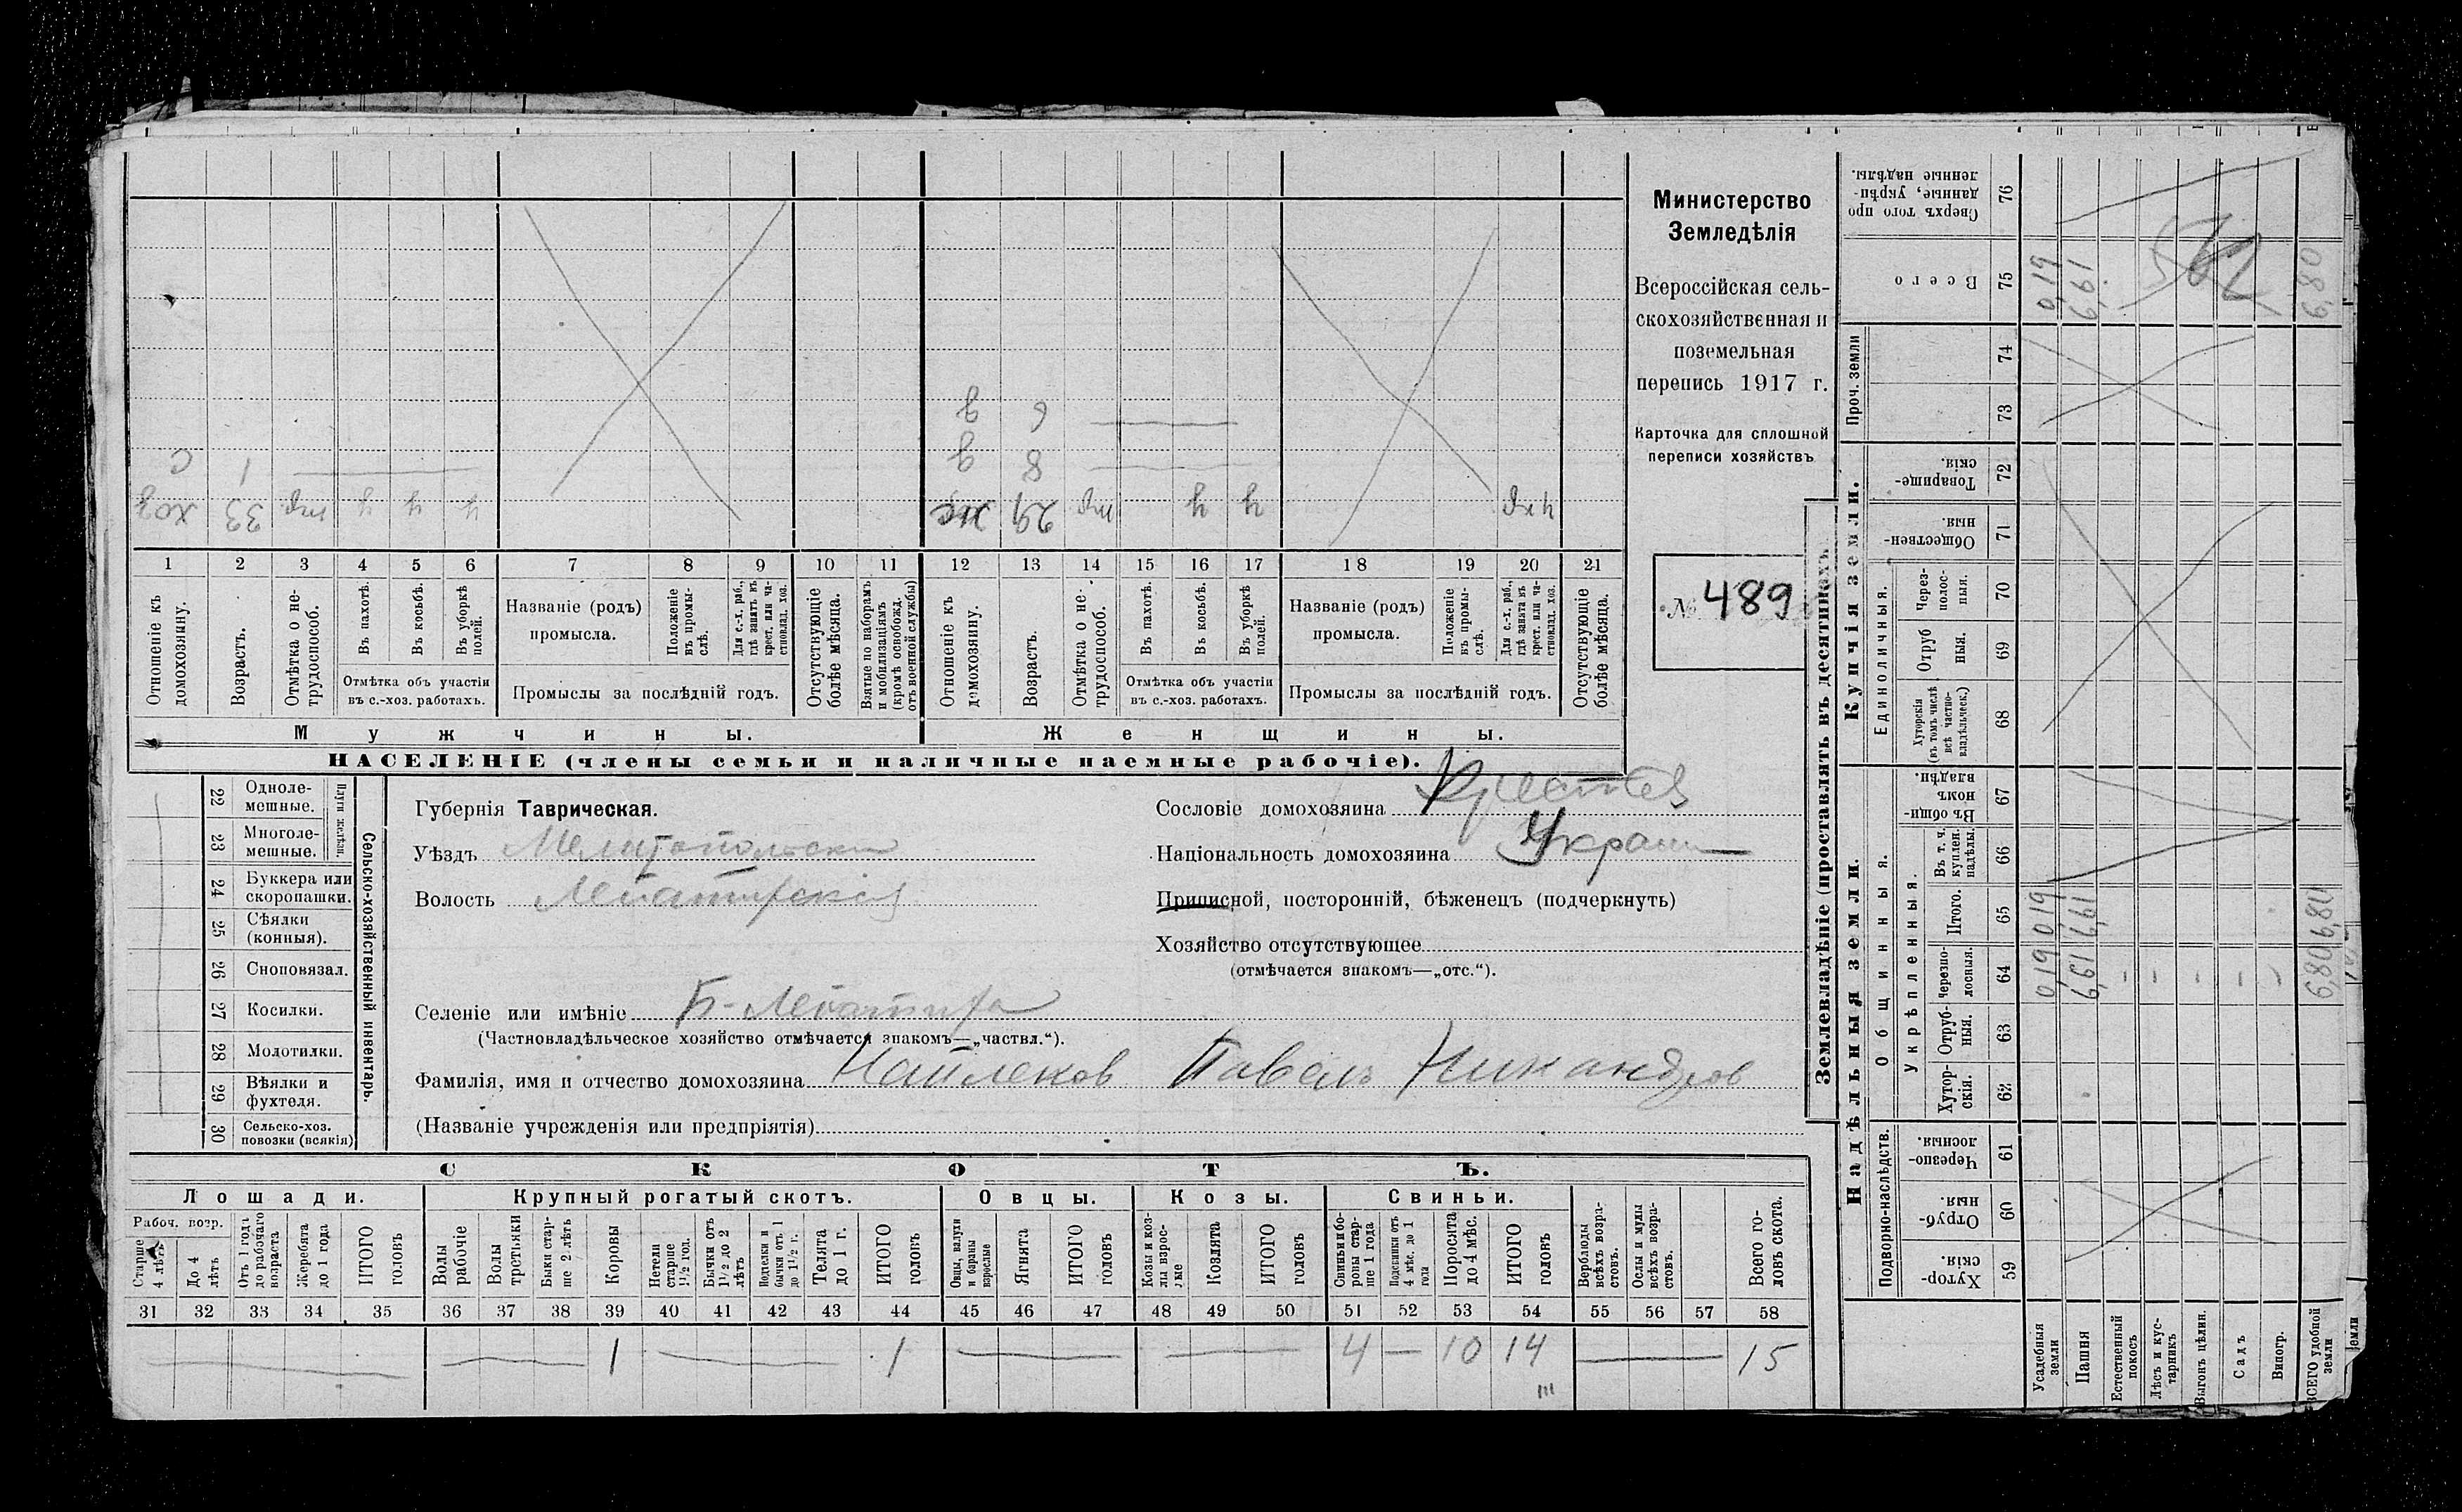 Министерство
Земледѣлія
Всероссійская сель-
скохозяйственная и
поземельная
перепись 1917 г.
Карточка для сплошной
переписи хозяйствъ
№ 489
хоз 33 тр. ч ч ч
с 1
29 тр ч ч
д 8
д 6
1 2 3 4 5 6 7 8 9 10 11 12 13 14 15 16 17 18 19 20 21
Отношеніе къ домохозяину.
Возрастъ.
Отмѣтка о не-трудоспособ.
Въ пахотѣ.
Въ косьбѣ.
Въ уборкѣ полей.
Отмѣтка объ участіи
въ с.-хоз. работахъ.
Названіе (родъ)
промысла.
Положеніе въ промы-слѣ.
Для с.-х. раб., гдѣ занятъ въ крест. или ча-стновлад. хоз.
Промыслы за послѣдній годъ.
Отсутствующіе болѣе мѣсяца.
Взятые по наборамъ и мобилизаціямъ (кромѣ освобожд. отъ военной службы)
Отношеніе къ домохозяину.
Возрастъ.
Отмѣтка о не-трудоспособ.
Въ пахотѣ.
Въ косьбѣ.
Въ уборкѣ полей.
Отмѣтка объ участіи
въ с.-хоз. работахъ.
Названіе (родъ)
промысла.
Положеніе въ промы-слѣ.
Для с.-х. раб., гдѣ занята въ крест. или ча-стновлад. хоз.
Промыслы за послѣдній годъ.
Отсутствующіе болѣе мѣсяца.
Мужчины.
Женщины.
НАСЕЛЕНІЕ (члены семьи и наличные наемные рабочіе).
Сельско-хозяйственный инвентарь.
Плуги желѣзн.
22 Одноле-мешные.
23 Многоле-мешные.
24 Буккера или скоропашки.
25 Сѣялки (конныя).
26 Сноповязал.
27 Косилки.
28 Молотилки.
29 Вѣялки и фухтеля.
30 Сельско-хоз. повозки (всякія)
Губернія Таврическая.
Уѣздъ Мелитопольскій
Волость
Селеніе или имѣніе
(Частновладѣльческое хозяйство отмѣчается знакомъ—„частвл.“).
Фамилія, имя и отчество домохозяина Павелъ Никандров
(Названіе учрежденія или предпріятія)
Сословіе домохозяина
Національность домохозяина Украин
Приписной, посторонній, бѣженецъ (подчеркнуть)
Хозяйство отсутствующее
(отмѣчается знакомъ—„отс.“).
СКОТЪ.
Лошади.
Рабоч. возр.
Старше 4 лѣтъ
До 4 лѣтъ
Отъ 1 года до рабочаго возраста
Жеребята до 1 года
ИТОГО головъ
Крупный рогатый скотъ.
Волы рабочіе
Волы третьяки
Быки стар-ше 2 лѣтъ
Коровы
Нетели старше 1½ год.
Бычки отъ 1½ до 2 лѣтъ
Подтелки и бычки отъ 1 до 1½ г.
Телята до 1 г.
ИТОГО головъ
Овцы.
Овцы, валухи и бараны взрослые
Ягнята
ИТОГО головъ
Козы.
Козы и коз-лы взрос-лые
Козлята
ИТОГО головъ
Свиньи.
Свиньи и бо-ровы стар-ше 1 года
Подсвинки отъ 4 мѣс. до 1 года
Поросята до 4 мѣс.
ИТОГО головъ
Верблюды всѣхъ возра-стовъ.
Ослы и мулы всѣхъ возра-стовъ.
Всего го-ловъ скота.
31 32 33 34 35 36 37 38 39 40 41 42 43 44 45 46 47 48 49 50 51 52 53 54 55 56 57 58
1 1 4 — 10 14 15
Землевладѣніе (проставлять въ десятинахъ
Надѣльныя земли.
Купчія земли.
Проч. земли
Подворно-наслѣдств.
Общинныя.
Укрѣпленныя.
Единоличныя.
Сверхъ того про данные, укрѣп-ленные надѣлы. 76
Всего 75
74
73
Товарище-скія. 72
Обществен-ныя. 71
Через-полос-ныя. 70
Отруб ныя. 69
Хуторскія (въ томъ числѣ всѣ частно-владѣльческ.) 68
Въ общи-номъ владѣн. 67
Въ т. ч. куплен. надѣлы. 66
Итого. 65
Черезпо-лосныя. 64
Отруб-ныя. 63
Хутор-скія. 62
Черезпо-лосныя. 61
Отруб-ныя. 60
Хутор-скія. 59
Усадебныя земли 0,19 0,19 0,19
Пашня 6,61 6,61 6,61
Естественный покосъ
Лѣсъ и кус-тарникъ
Выгонъ цѣлин.
Садъ
Виногр.
ВСЕГО удобной земли 6,80 6,80 6,80